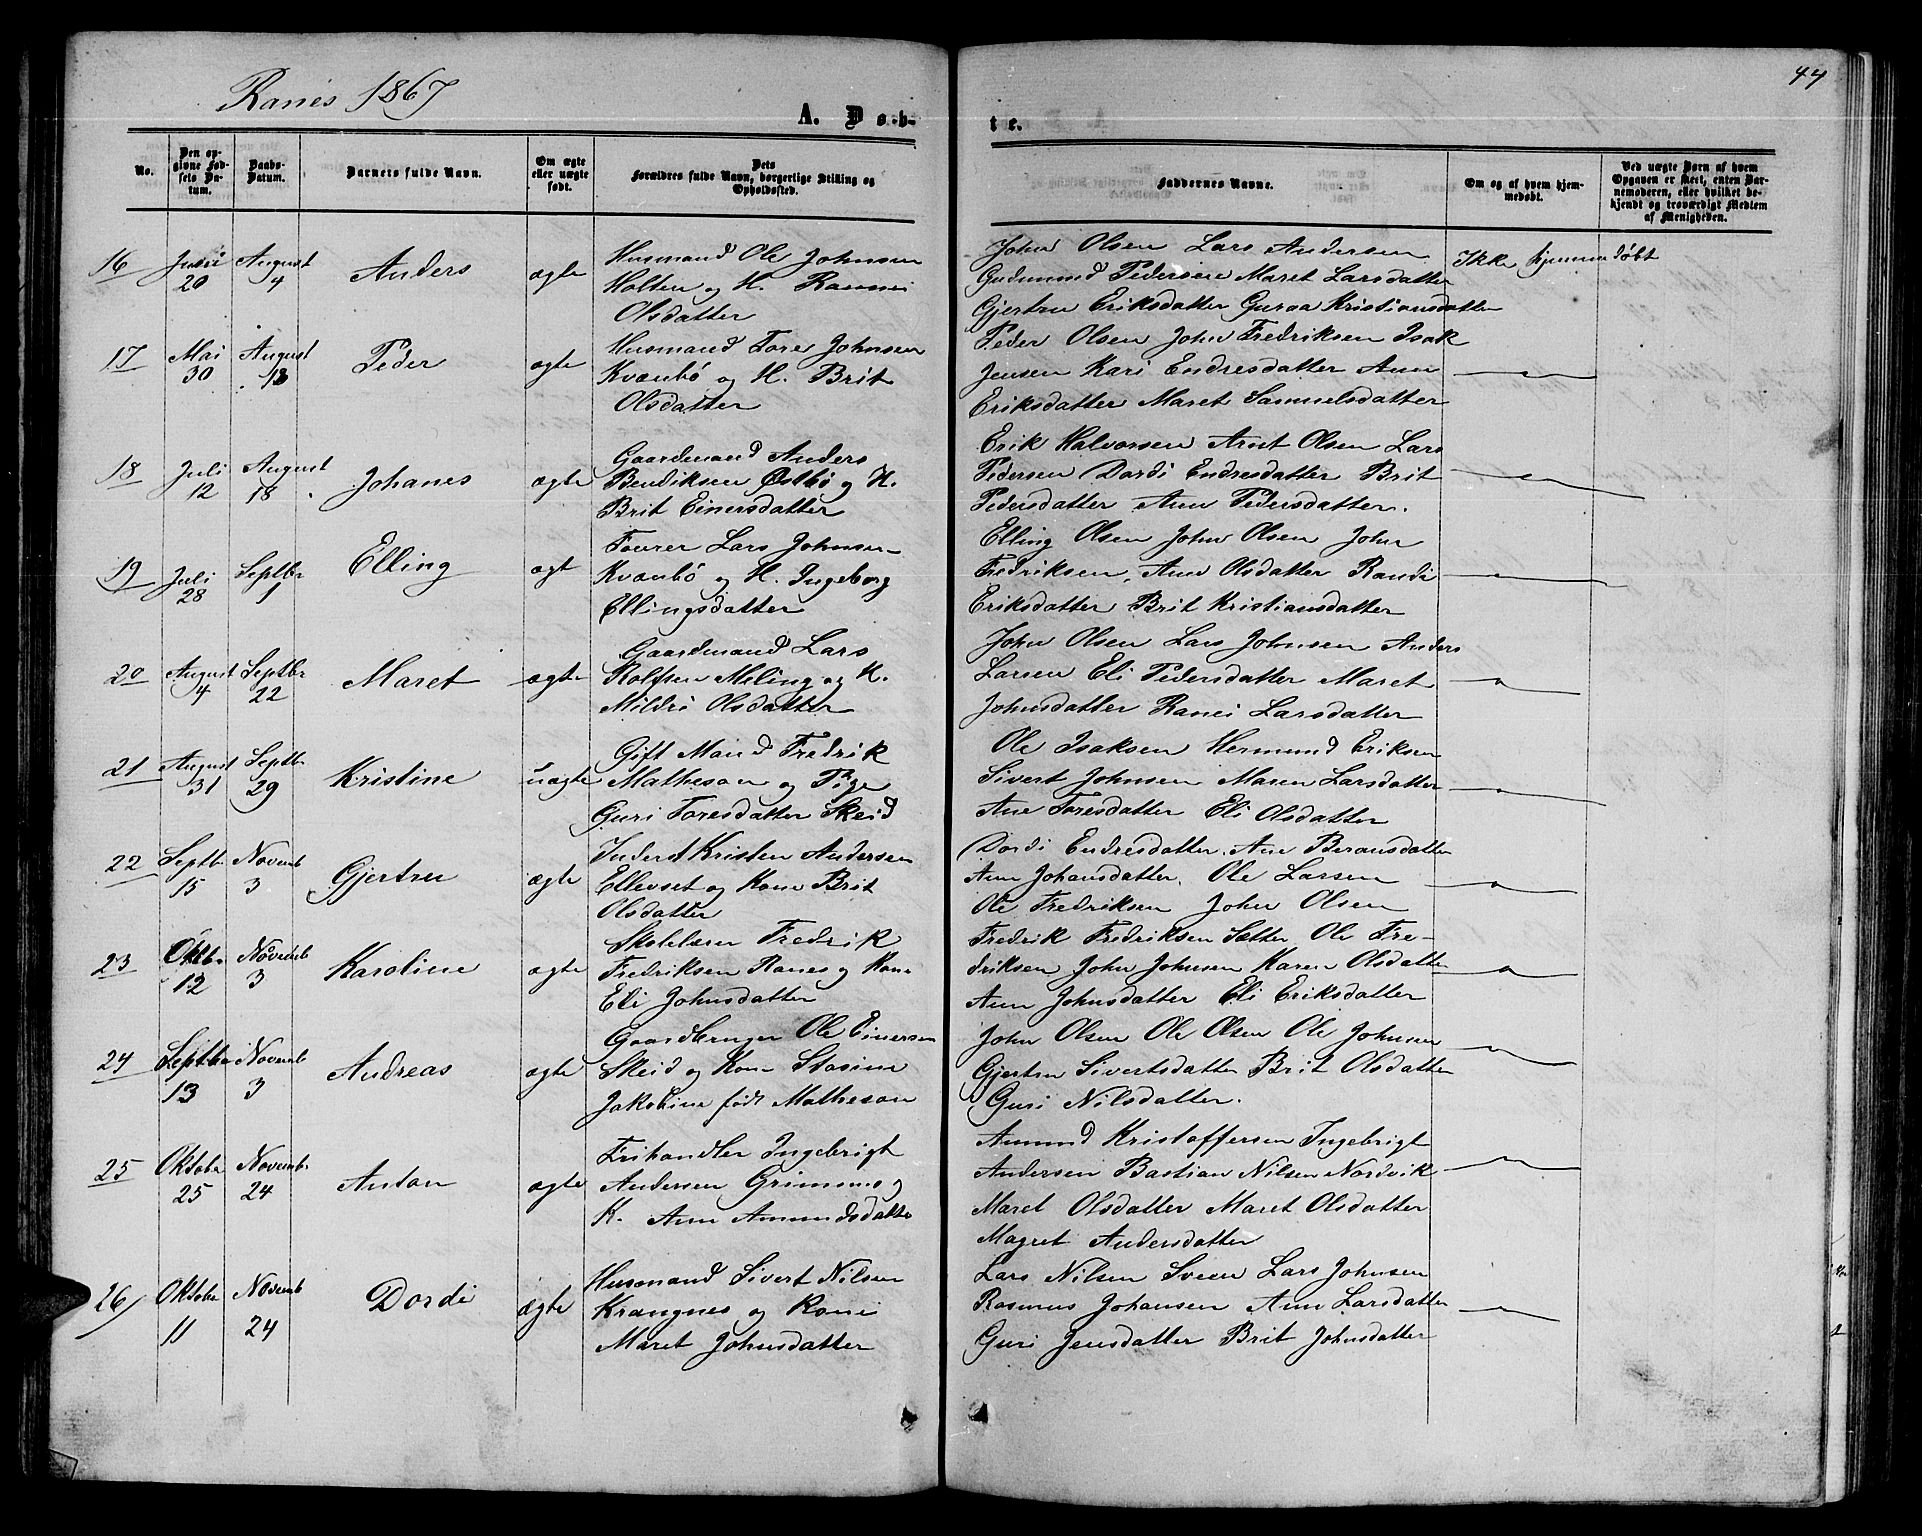 Ranes 1867
44
A. Døb-
te.
No.
Den opgivne Fødsels Datum.
Daabs-Datum.
Barnets fulde Navn.
Om ægte eller uægte født.
Dets Forældres fulde Navn, borgerlige Stilling og Opholdssted.
Faddernes Navne.
Om og af hvem hjemmedøbt.
Ved uægte Børn af hvem Opgaven er skeet, enten Barnemoderen, eller hvilket bekjendt og troværdigt Medlem af Menigheden.
16 Juli 20 August 4 Anders ægte
Husmand Ole Johnsen
Holten og H. Rannei
Olsdatter
John Olsen Lars Andersen
Gudmund Pedersen Maret Larsdatter
Gjertru Eriksdatter Guraa Kristiansdatter
Ikke hjemmedøbt
17 Mai 30 August 18 Peder ægte
Husmand Tore Johnsen
Kvænbø og H. Brit
Olsdatter
Peder Olsen John Fredriksen Isak
Jensen Kari Endresdatter Ann
Eriksdatter Maret Samuelsdatter
18 Juli 12 August 18 Johanes ægte
Gaardmand Anders
Bendiksen Østbø og H.
Brit Einersdatter
Erik Halvorsen Arnt Olsen Lars
Pedersen Dordi Endresdatter Brit
Pedersdatter Ann Pedersdatter.
19 Juli 28 Septbr 1 Elling ægt
Foerer Lars Johnsen
Kvænbø og H. Ingeborg
Ellingsdatter
Elling Olsen John Olsen John
Fredriksen, Ann Olsdatter Randi
Eriksdatter Brit Kristiansdatter
20 August 4 Septbr 22 Maret ægte
Gaardmand Lars
Rolfsen Meling og K.
Mildri Olsdatter
John Olsen Lars Johnsen Anders
Larsen Eli Pedersdatter Maret
Johnsdatter Ranei Larsdatter
21 August 31 Septbr 29 Kristine uægte
Gift Mand Fredrik
Matheson og Pige
Guri Toresdatter Skeid
Ole Isaksen Hermund Eriksen
Sivert Johnsen Maren Larsdatter
Ane Toresdatter Eli Olsdatter
22 Septbr 15 Novemb 3 Gjertru ægte
Inderst Kristen Andersen
Ellevset og Kone Brit
Olsdatter
Dordi Endresdatter, Ane Beransdatter
Ann Johansdatter, Ole Larsen
Ole Fredriksen John Olsen
23 Oktbr 12 Novemb 3 Karoline ægte
Skolelærer Fredrik
Fredriksen Ranes og Kone
Eli Johnsdatter
Fredrik Fredriksen Sætter Ole Fre-
driksen John Johnsen Karen Olsdatter
Ann Johnsdatter Eli Eriksdatter
24 Septbr 13 Novemb 3 Andreas ægte
Gaardbruger Ole Einersen
Skeid og Kone Stasine
Jakobine født Matheson
John Olsen Ole Olsen Ole Johnsen
Gjertru Sivertsdatter Brit Olsdatter
Guri Nilsdatter.
25 Oktobr 25 Novembr 24 Anton ægte
Frihandler Ingebrigt
Andersen Grimsmo og
K. Ann Amundsdatter
Amund Kristoffersen Ingebrigt
Andersen Bastian Nilsen Nordvik
Maret Olsdatter Maret Olsdatter
Magret Andersdatter
26 Oktobr 11 Novemb 24 Dordi ægte
Husmand Sivert Nilsen
Krangnes og Kone
Maret Johnsdatter
Lars Nilsen Sveen Lars Johnsen
Rasmus Johansen Ann Larsdatter
Guri Jensdatter Brit Johnsdatter